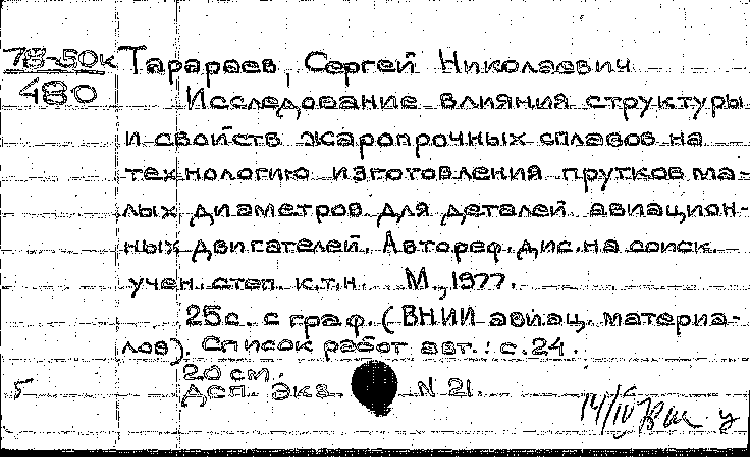 78-50к Тарараев, Сергей Николаевич
480 Исследование влияния структуры
и свойств жаропрочных сплавов на
технологию изготовления прутков ма-
лых диаметров для деталей авиацион-
ных двигателей. Автореф. дис. на соиск.
учен. степ. к.т.н. М., 1977.
25с. с граф. (ВНИИ авиац. материа-
лов). Список работ авт.: с.24.
20 см.
5 Дсп. Экз. N 21.
14/IV